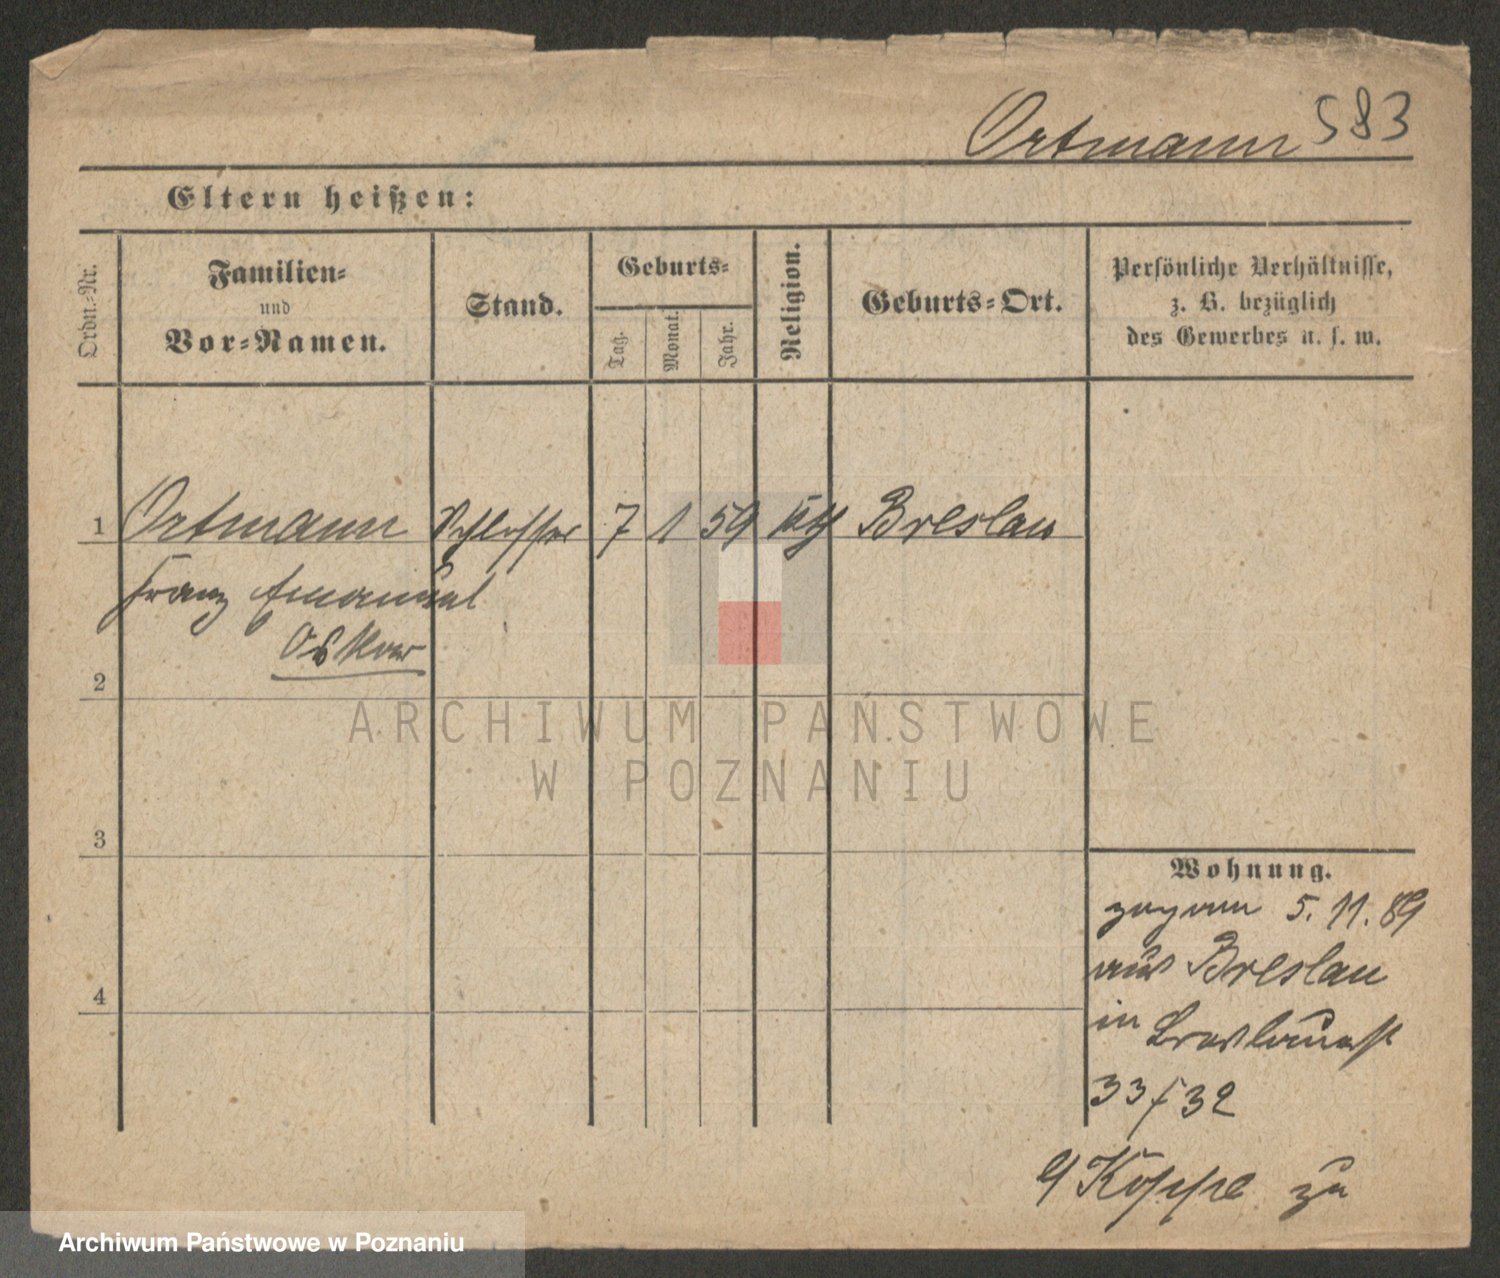 Ortmann 583
Eltern heißen:
Ordn.-Nr.
Familien-
und
Vor-Namen.
Stand.
Geburts-
Tag.
Monat.
Jahr.
Religion.
Geburts-Ort.
Persönliche Verhältnisse,
z. B. bezüglich
des Gewerbes u. s. w.
1 Ortmann Schlosser 7 1 59 kth Breslau
Franz Emanuel
Oskar
2
3
4
Wohnung.
zugezogen 5. 11. 89
aus Breslau
in Breslauerst
33/32
Koppe zu
ARCHIWUM PAŃSTWOWE
W POZNANIU
Archiwum Państwowe w Poznaniu